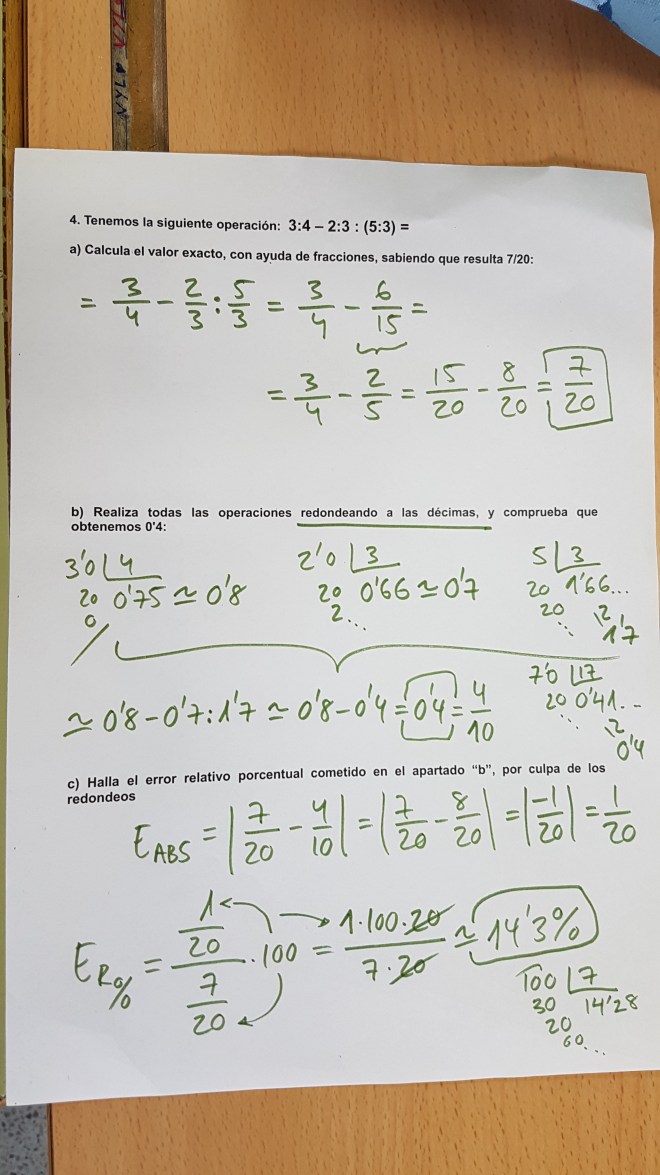 NYLO NYLO
4. Tenemos la siguiente operación: 3:4 – 2:3 : (5:3) =
a) Calcula el valor exacto, con ayuda de fracciones, sabiendo que resulta 7/20:
= 3/4 - 2/3 : 5/3 = 3/4 - 6/15 =
= 3/4 - 2/5 = 15/20 - 8/20 = 7/20
b) Realiza todas las operaciones redondeando a las décimas, y comprueba que
obtenemos 0'4:
3'0 | 4
20 0'75 ≃ 0'8
0
2'0 | 3
20 0'66 ≃ 0'7
2...
5 | 3
20 1'66...
20
... ≃ 1'7
≃ 0'8 - 0'7 : 1'7 ≃ 0'8 - 0'4 = 0'4 = 4/10
7'0 | 17
20 0'41...
... ≃ 0'4
c) Halla el error relativo porcentual cometido en el apartado “b”, por culpa de los
redondeos
E ABS = |7/20 - 4/10| = |7/20 - 8/20| = |-1/20| = 1/20
E R% = 1/20 / 7/20 · 100 = 1·100·20 / 7·20 ≃ 14'3%
100 | 7
30 14'28
20
60...